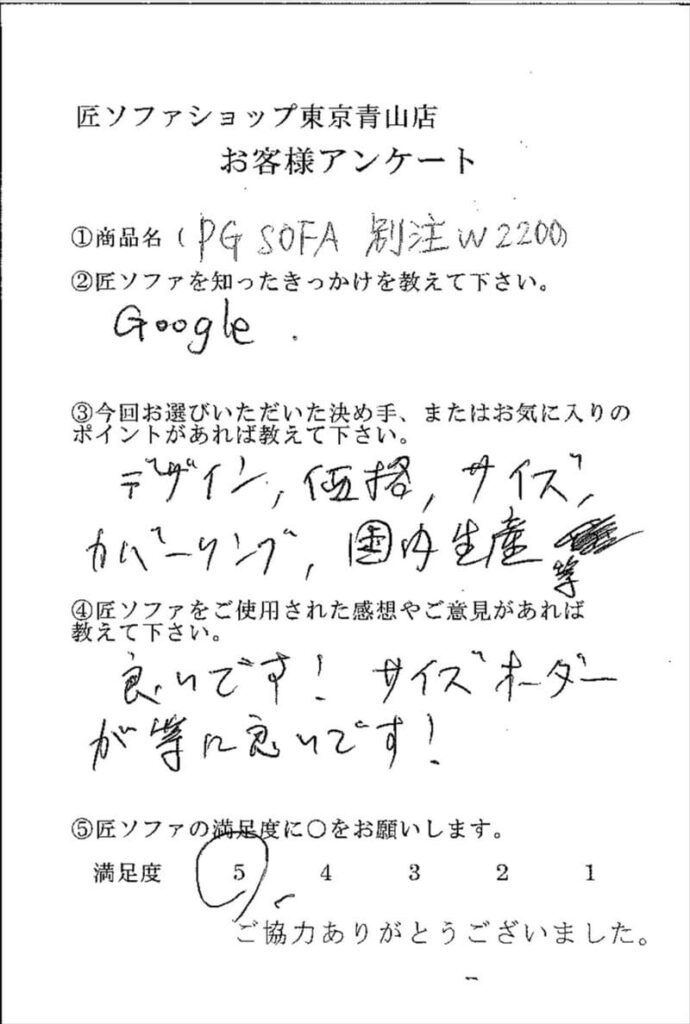 匠ソファショップ東京青山店
お客様アンケート
①商品名(PG SOFA 別注W2200)
②匠ソファを知ったきっかけを教えて下さい。
Google.
③今回お選びいただいた決め手、またはお気に入りの
ポイントがあれば教えて下さい。
デザイン,価格,サイズ,
カバーリング,国内生産
等
④匠ソファをご使用された感想やご意見があれば
教えて下さい。
良いです!サイズオーダー
が等に良いです!
⑤匠ソファの満足度に○をお願いします。
満足度 5 4 3 2 1
ご協力ありがとうございました。